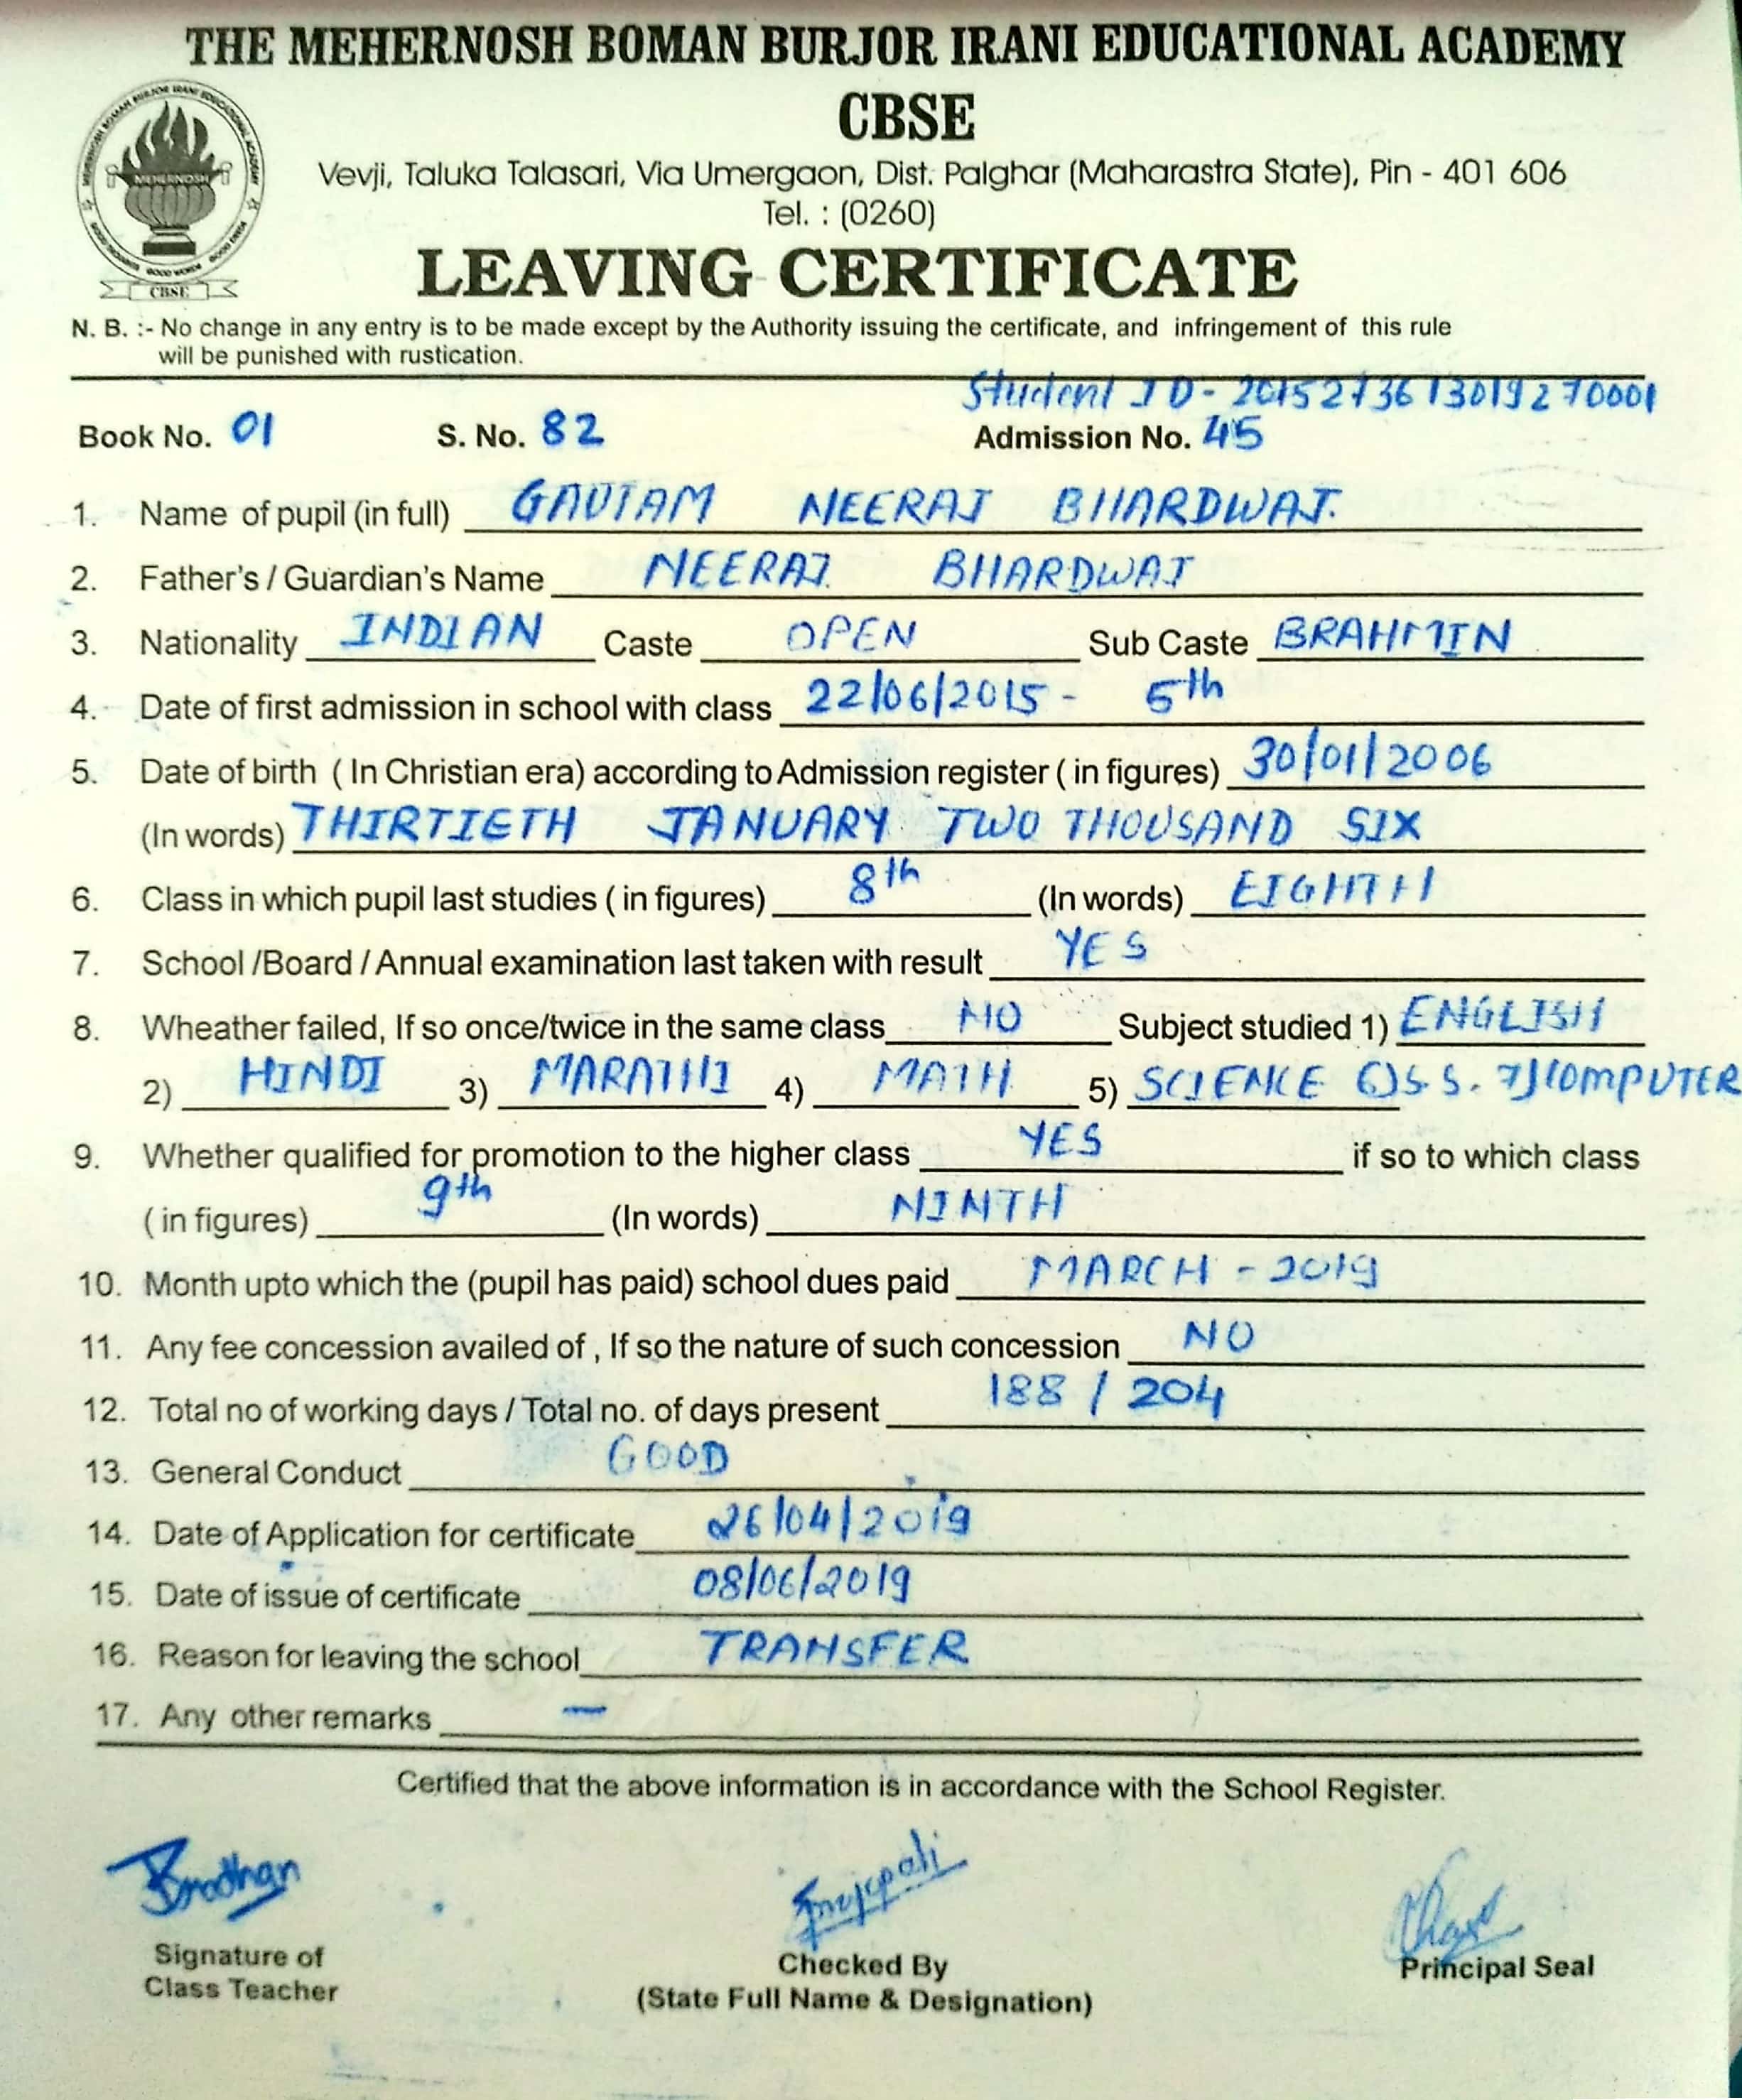 THE MEHERNOSH BOMAN BURJOR IRANI EDUCATIONAL ACADEMY
CBSE
MEHERNOSH BOMAN BURJOR IRANI EDUCATIONAL ACADEMY
MEHERNOSH
GOOD WORDS
CBSE
Vevji, Taluka Talasari, Via Umergaon, Dist. Palghar (Maharastra State), Pin - 401 606
Tel. : (0260)
LEAVING CERTIFICATE
N. B. :- No change in any entry is to be made except by the Authority issuing the certificate, and infringement of this rule
will be punished with rustication.
Student ID - 2015273613019270001
Book No. 01 S. No. 82 Admission No. 45
1. Name of pupil (in full) GAUTAM NEERAJ BHARDWAJ.
2. Father's / Guardian's Name NEERAJ BHARDWAJ
3. Nationality INDIAN Caste OPEN Sub Caste BRAHMIN
4. Date of first admission in school with class 22/06/2015 - 5th
5. Date of birth ( In Christian era) according to Admission register ( in figures) 30/01/2006
(In words) THIRTIETH JANUARY TWO THOUSAND SIX
6. Class in which pupil last studies ( in figures) 8th (In words) EIGHTH
7. School /Board / Annual examination last taken with result YES
8. Wheather failed, If so once/twice in the same class NO Subject studied 1) ENGLISH
2) HINDI 3) MARATHI 4) MATH 5) SCIENCE 6) S.S. 7) COMPUTER
9. Whether qualified for promotion to the higher class YES if so to which class
( in figures) 9th (In words) NINTH
10. Month upto which the (pupil has paid) school dues paid MARCH - 2019
11. Any fee concession availed of , If so the nature of such concession NO
12. Total no of working days / Total no. of days present 188 / 204
13. General Conduct GOOD
14. Date of Application for certificate 26/04/2019
15. Date of issue of certificate 08/06/2019
16. Reason for leaving the school TRANSFER
17. Any other remarks —
Certified that the above information is in accordance with the School Register.
Signature of
Class Teacher
Checked By
(State Full Name & Designation)
Principal Seal